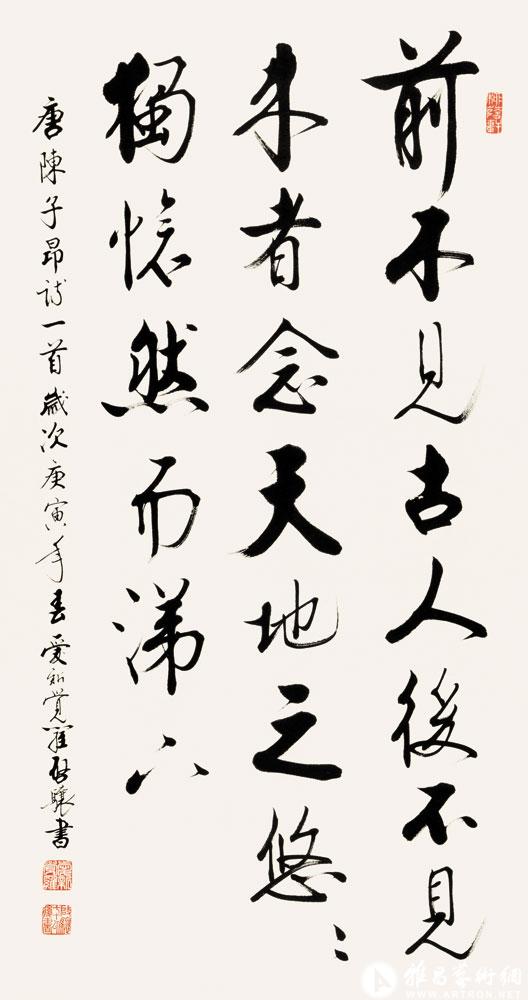 前不見古人後不見
来者念天地之悠々
獨愴然而涕下
唐陳子昂詩一首歲次庚寅年春愛新覺羅啟驤書
雅昌藝術網
WWW.ARTRON.NET